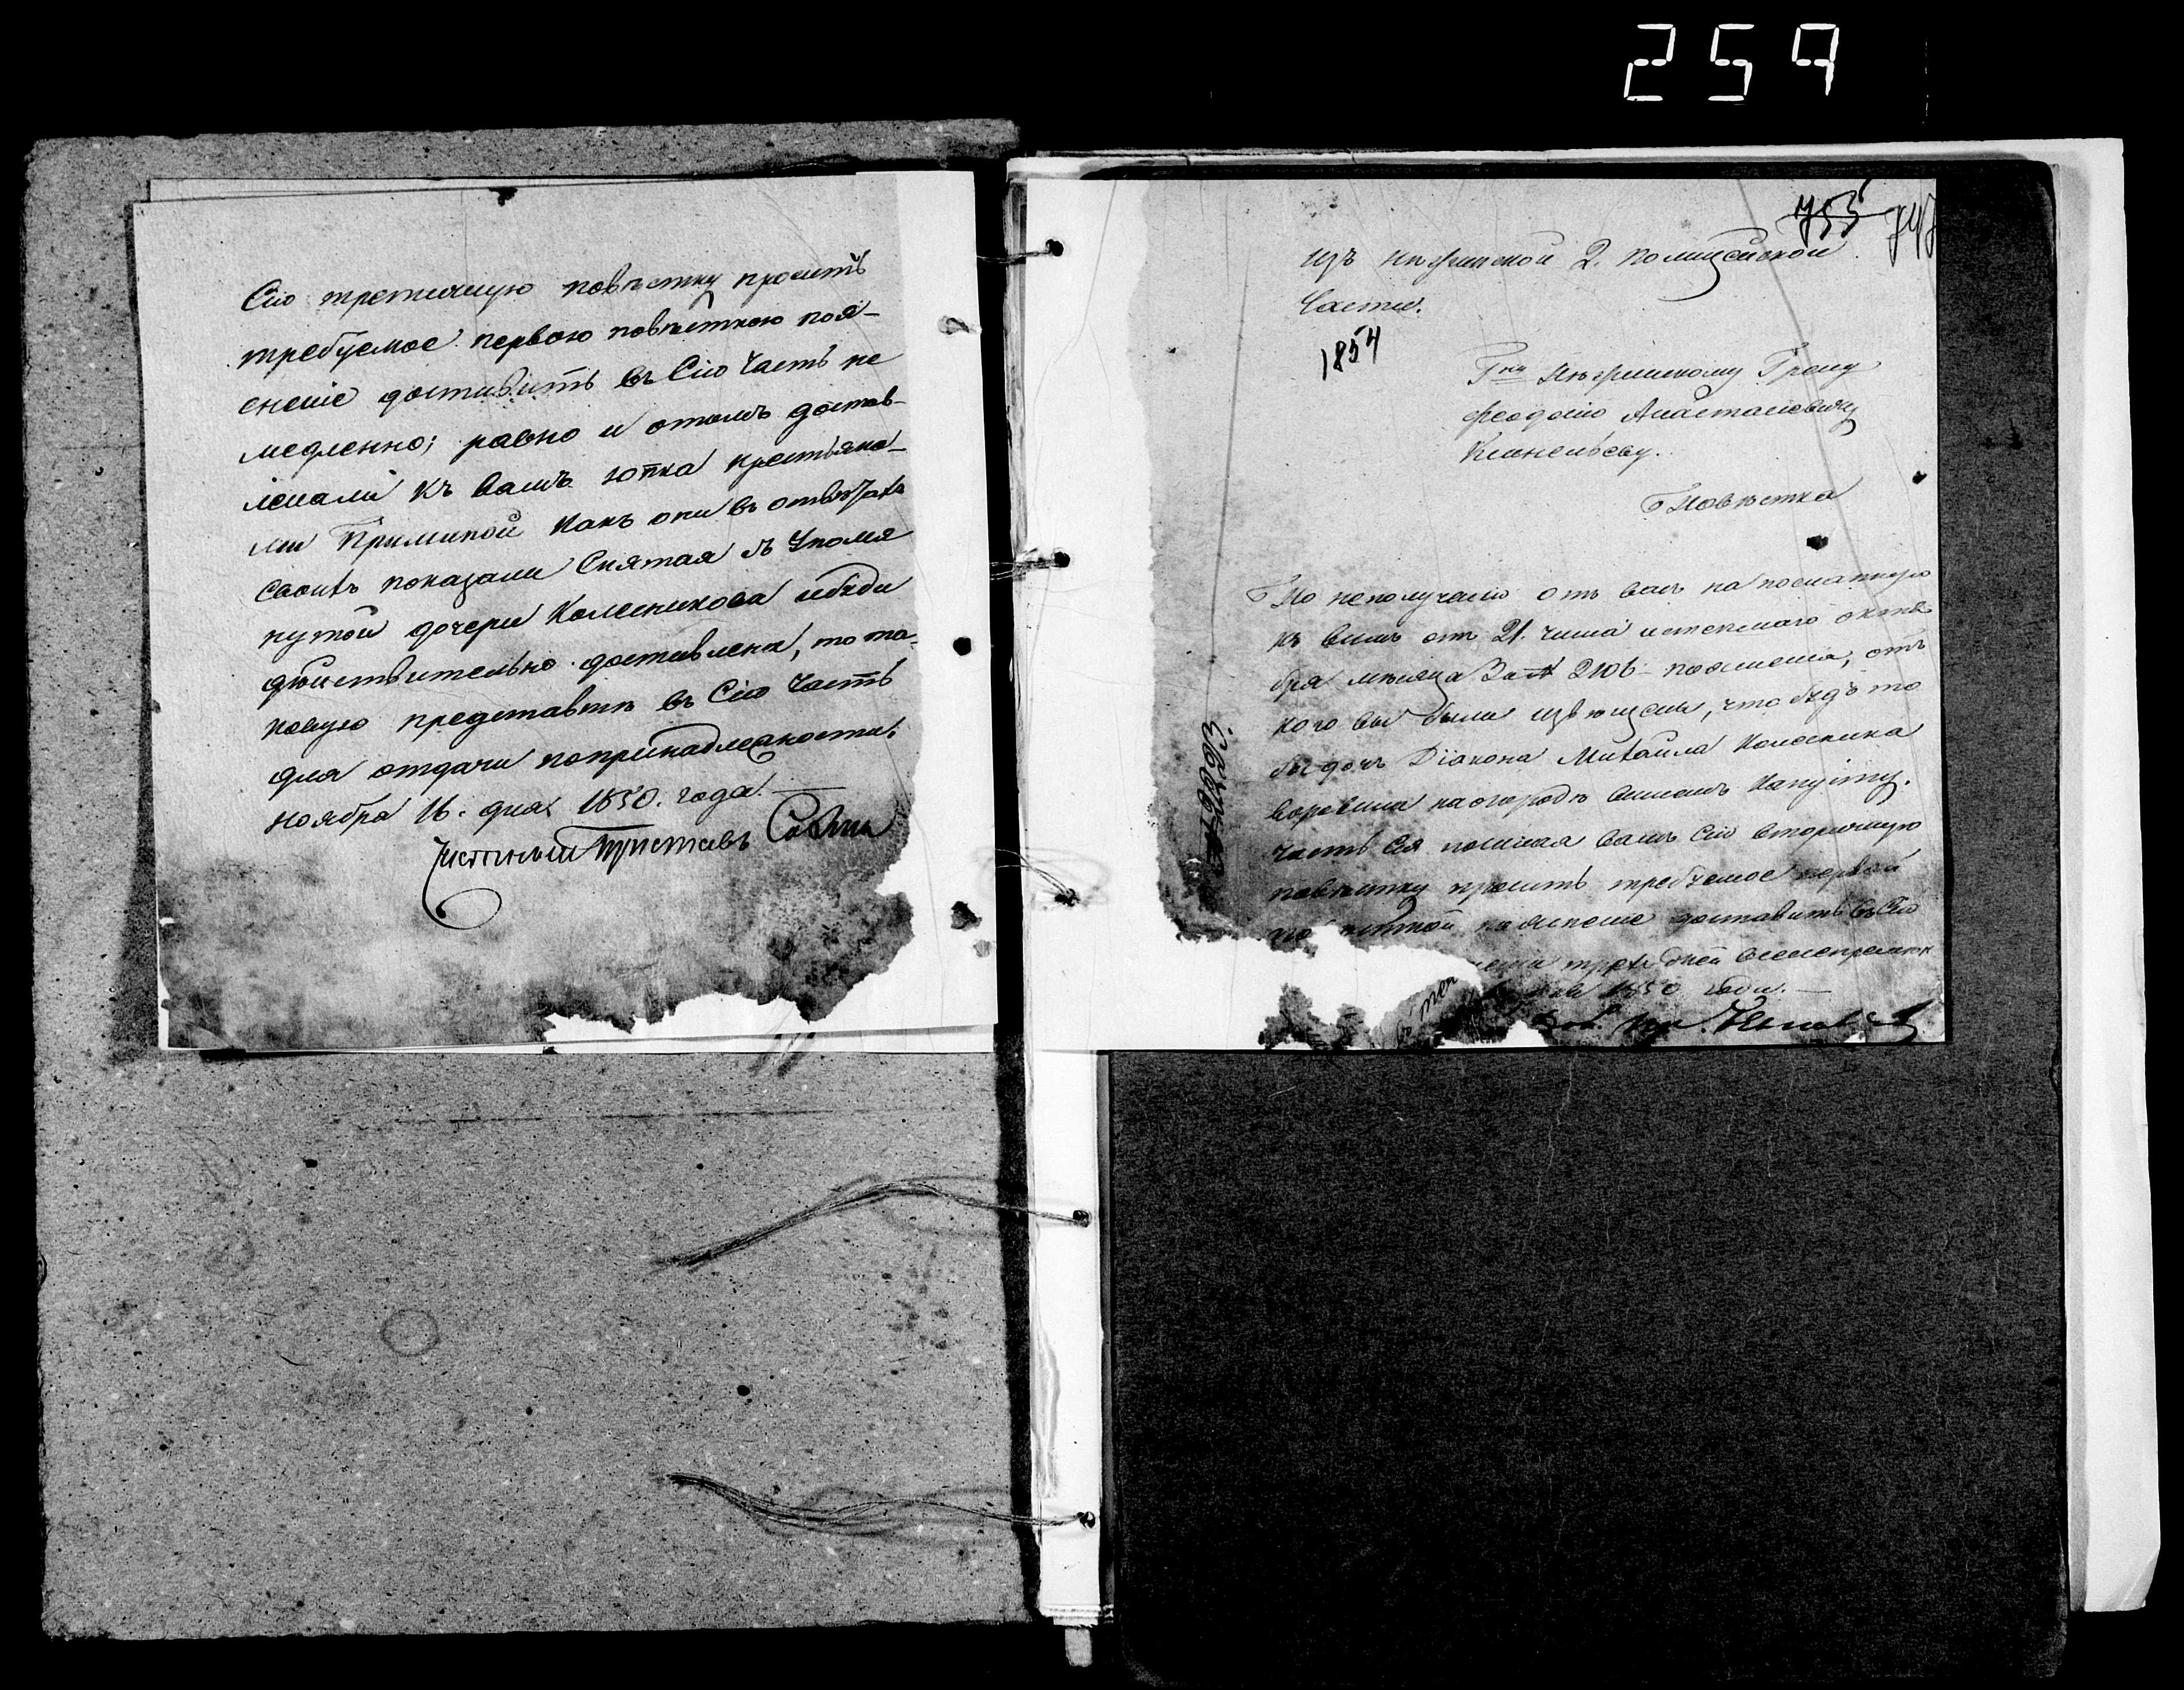 259
Сію третичную повѣстку просить
требуемое первою повѣсткою поя-
снение доставить въ Сію часть не
медленно; равно и отомъ достав-
къ вамъ юпка крестьяна-
ми какъ они въ отвѣтахъ
своихъ показали Снятая съ Упомя
нутой дочери Колесникова ибуди
дѣйствительно доставлена, то та-
ковую представить въ Сію часть
для отдачи попринадлежности.
ноября 16. дня 1850. года.
Частный Приставъ
755 747
изъ нѣжинской 2. полицейской
Части.
1854
Гну Нѣжинскому Греку
Феодосію Анастасіевичу
Повѣстка
По неполучению отъ васъ на посланную
къ вамъ отъ 21. числа истекшаго октя
бря мѣсяца За № 2106 пояснения, отъ
кого вы были извѣщены, что будъ то
бы дочь Діакона Михаила Колесника
воровала наогородѣ вашемъ капусту.
часть Ся посылая вамъ Сію вторичную
повѣстку просить требуемое первой
пояснение доставить въ Сію
трехъ дней
1850 года.